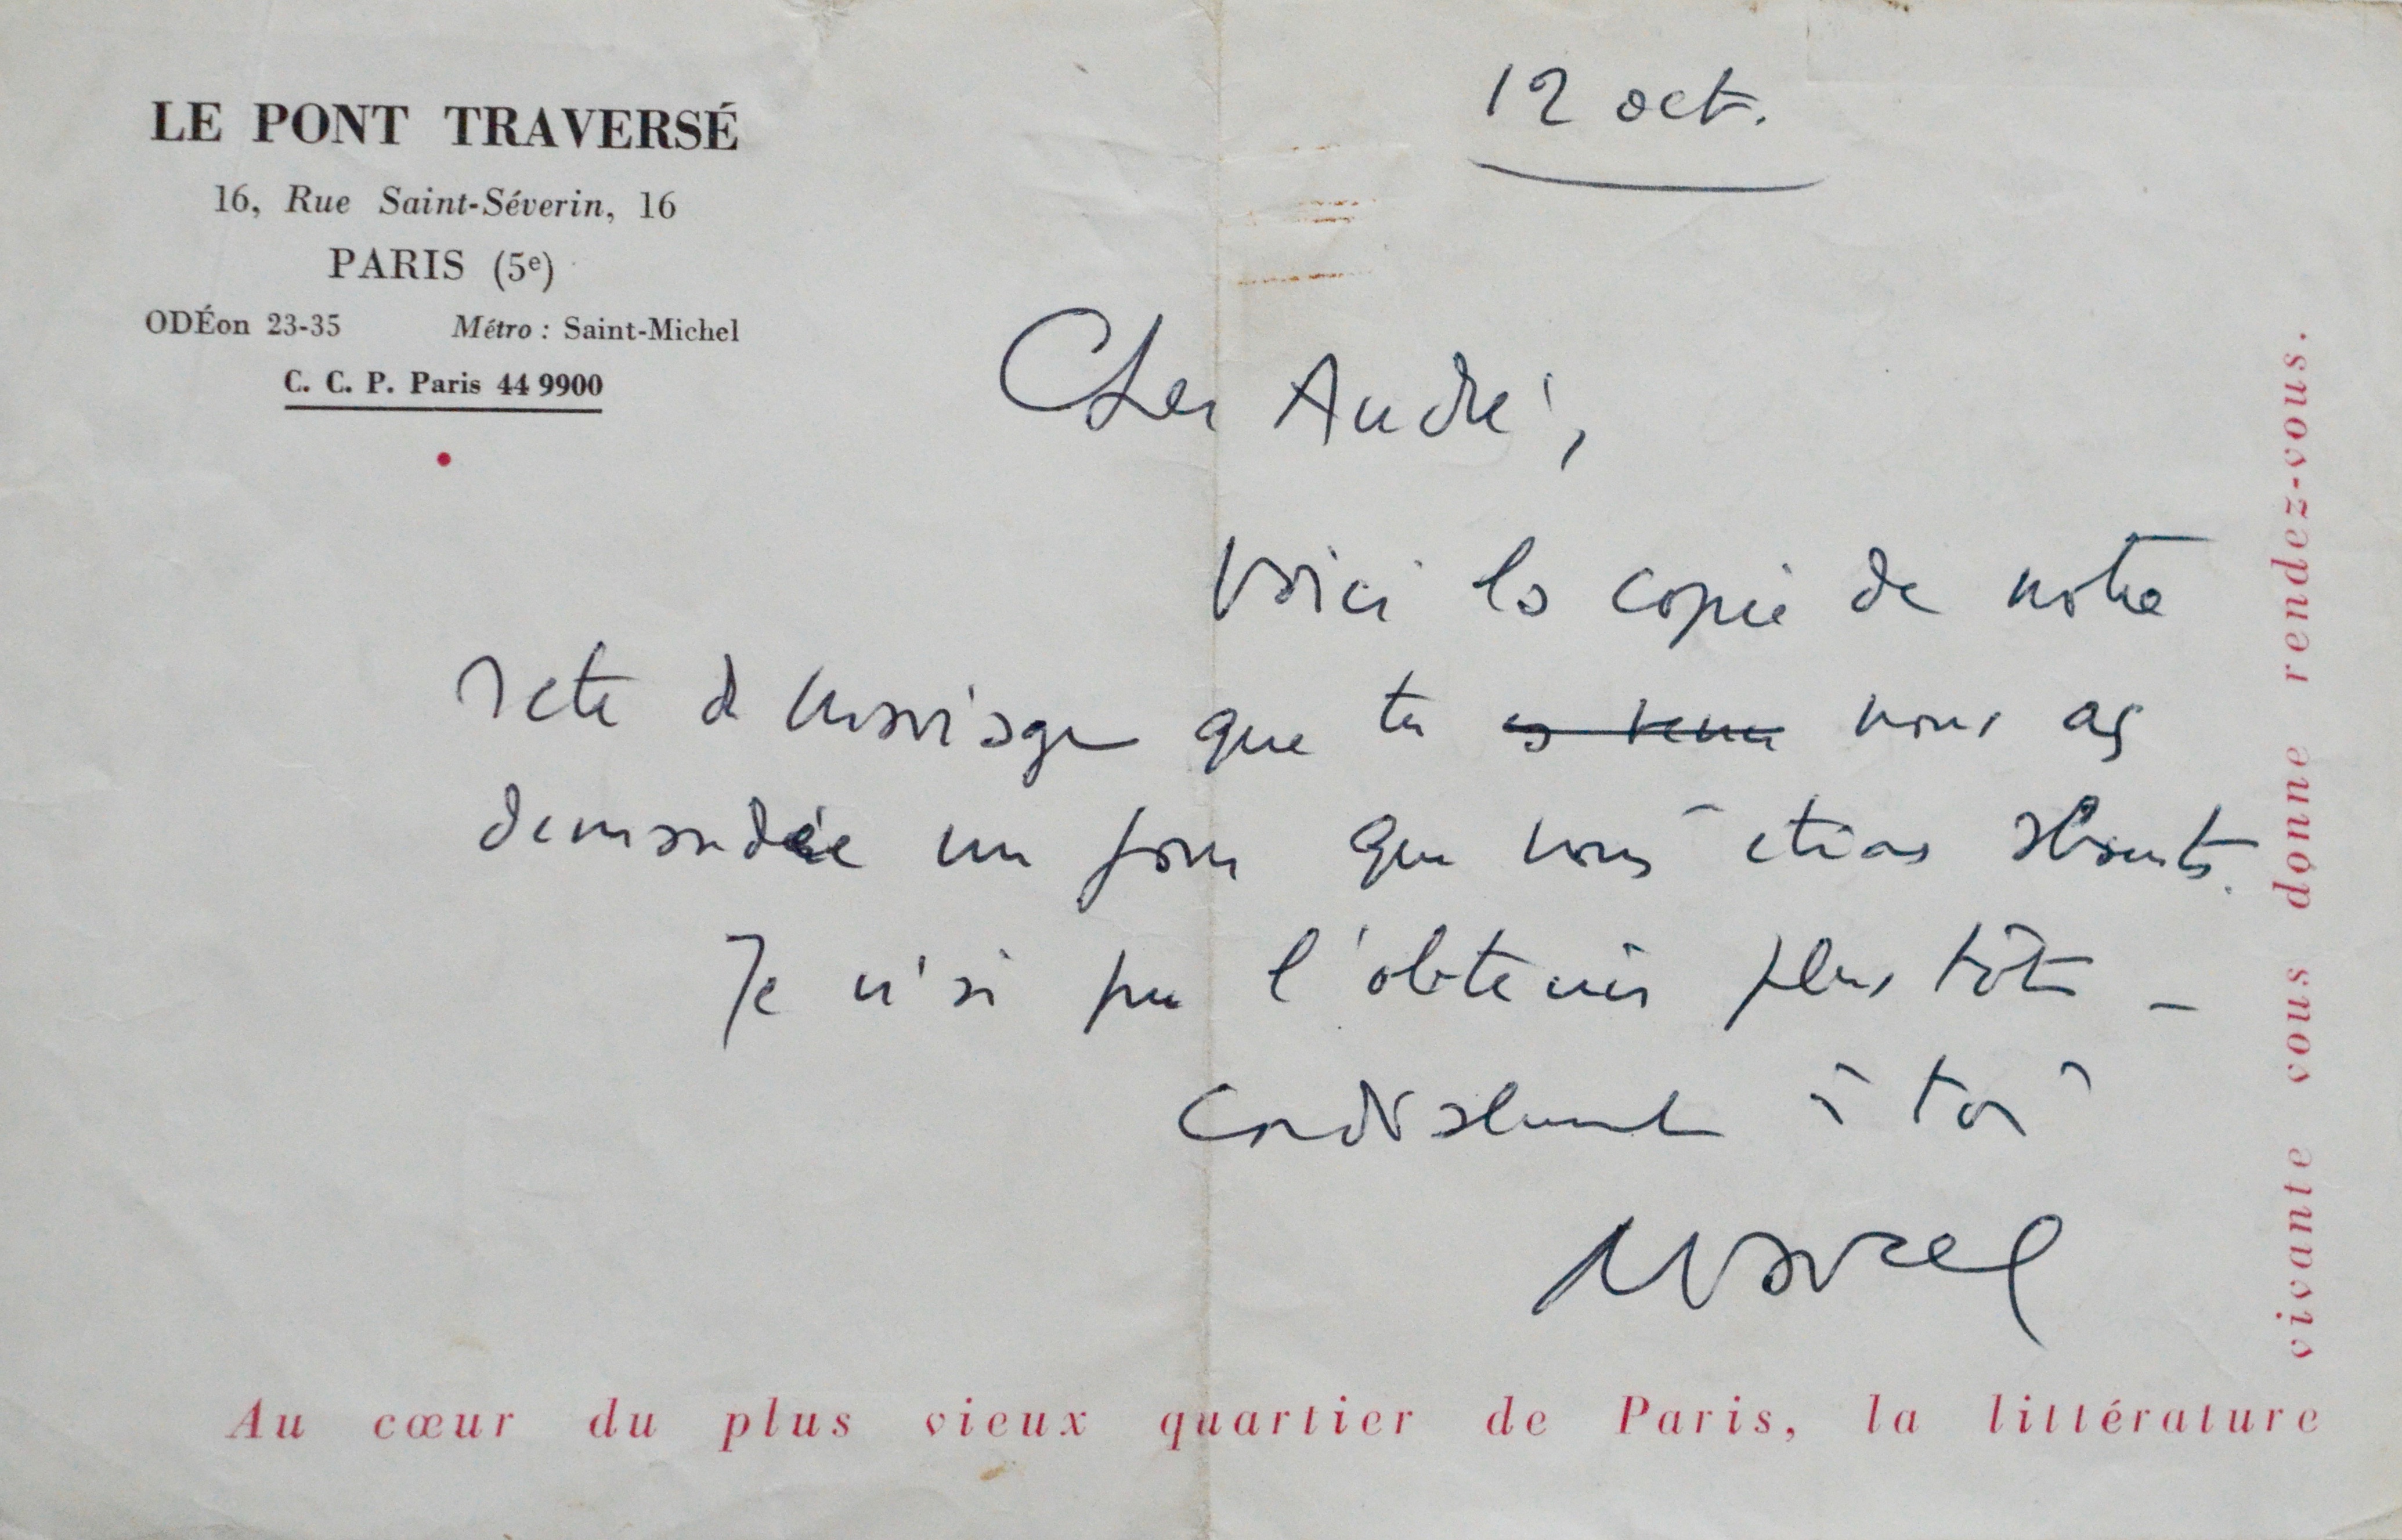 LE PONT TRAVERSÉ
16, Rue Saint-Séverin, 16
PARIS (5e)
ODÉon 23-35 Métro : Saint-Michel
C. C. P. Paris 44 9900
12 oct.
Cher André,
Voici la copie de notre
acte de mariage que tu es venu nous as
demandée un jour que nous étions absents.
Je n'ai pu l'obtenir plus tôt –
Cordialement à toi
Marcel
Au cœur du plus vieux quartier de Paris, la littérature
vivante vous donne rendez-vous.